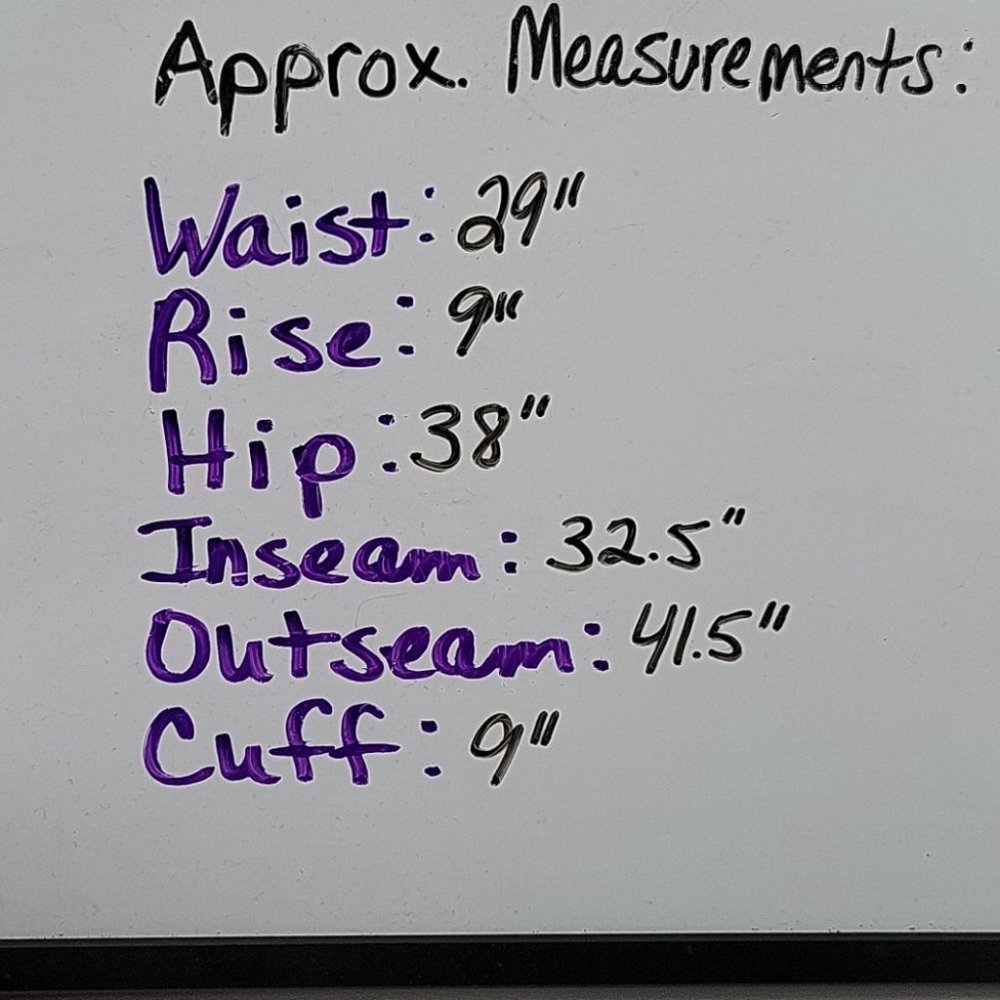 Approx. Measurements:
Waist: 29"
Rise: 9"
Hip: 38"
Inseam: 32.5"
Outseam: 41.5"
Cuff: 9"